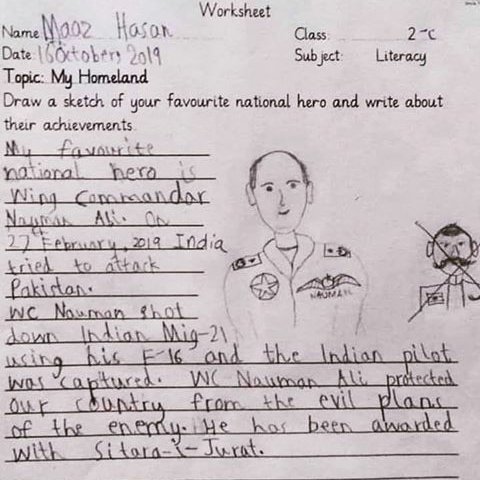 Worksheet
Name Maaz Hasan Class: 2-C
Date: 16 October, 2019 Subject: Literacy
Topic: My Homeland
Draw a sketch of your favourite national hero and write about
their achievements.
My favourite
national hero is
Wing Commandar
Nauman Ali. On
27 February, 2019 India
tried to attack
Pakistan.
WC Nauman shot
down Indian Mig-21
using his F-16 and the Indian pilot
was captured. WC Nauman Ali protected
our country from the evil plans
of the enemy. He has been awarded
with Sitara-i-Jurat.
NAUMAN